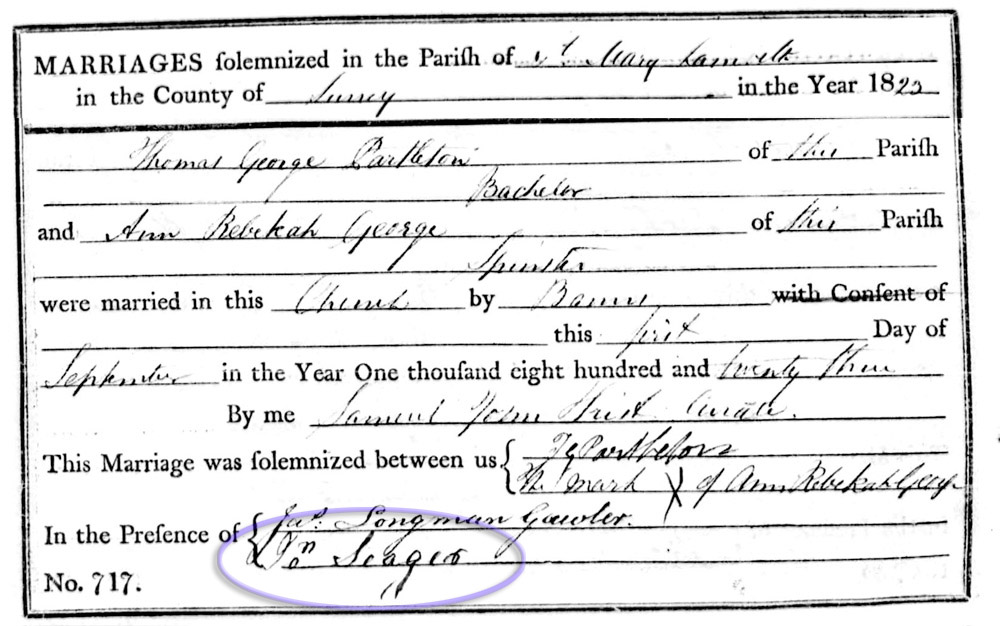 MARRIAGES ſolemnized in the Pariſh of St. Mary Lambeth
in the County of Surrey in the Year 1823
Thomas George Partleton of this Pariſh
Bachelor
and Ann Rebekah George of this Pariſh
Spinster
were married in this Church by Banns with Conſent of
this first Day of
September in the Year One thouſand eight hundred and twenty three
By me Samuel John Curate.
This Marriage was ſolemnized between us { T G Partleton
The mark X of Ann Rebekah George
In the Preſence of { Jas. Longman Gawler.
Jno Seager
No. 717.